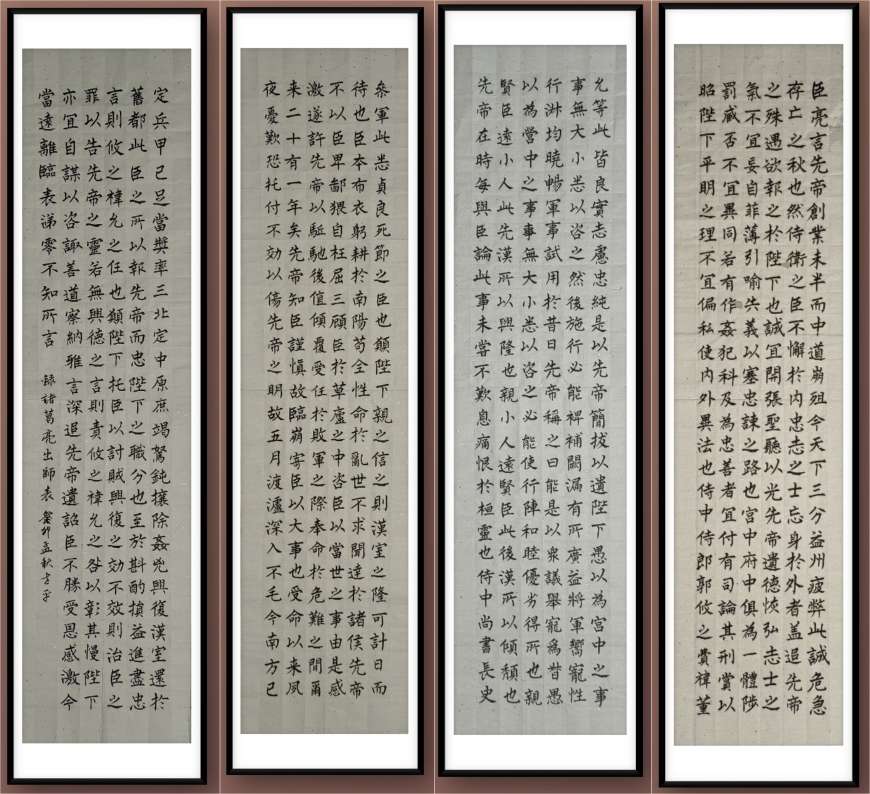 臣亮言先帝創業未半而中道崩殂今天下三分益州疲弊此誠危急
存亡之秋也然侍衛之臣不懈於内忠志之士忘身於外者盖追先帝
之殊遇欲報之於陛下也誠宜開張聖聽以光先帝遺德恢弘志士之
氣不宜妄自菲薄引喻失義以塞忠諫之路也宮中府中俱為一體陟
罰臧否不宜異同若有作姦犯科及為忠善者宜付有司論其刑賞以
昭陛下平明之理不宜偏私使内外異法也侍中侍郎郭攸之費禕董
允等此皆良實志慮忠純是以先帝簡拔以遺陛下愚以為宮中之事
事無大小悉以咨之然後施行必能裨補闕漏有所廣益將軍嚮寵性
行淑均曉暢軍事試用於昔日先帝稱之曰能是以衆議舉寵為督愚
以為營中之事事無大小悉以咨之必能使行陣和睦優劣得所也親
賢臣遠小人此先漢所以興隆也親小人遠賢臣此後漢所以傾頹也
先帝在時每與臣論此事未嘗不歎息痛恨於桓靈也侍中尚書長史
參軍此悉貞良死節之臣也願陛下親之信之則漢室之隆可計日而
待也臣本布衣躬耕於南陽苟全性命於亂世不求聞達於諸侯先帝
不以臣卑鄙猥自枉屈三顧臣於草廬之中咨臣以當世之事由是感
激遂許先帝以驅馳後值傾覆受任於敗軍之際奉命於危難之間爾
来二十有一年矣先帝知臣謹慎故臨崩寄臣以大事也受命以来夙
夜憂歎恐托付不効以傷先帝之明故五月渡瀘深入不毛今南方已
定兵甲已足當獎率三北定中原庶竭駑鈍攘除姦兇興復漢室還於
舊都此臣之所以報先帝而忠陛下之職分也至於斟酌損益進盡忠
言則攸之禕允之任也願陛下托臣以討賊興復之効不效則治臣之
罪以告先帝之靈若無興德之言則責攸之禕允之咎以彰其慢陛下
亦宜自謀以咨諏善道察納雅言深追先帝遺詔臣不勝受恩感激今
當遠離臨表涕零不知所言 録諸葛亮出師表 癸卯孟秋方平